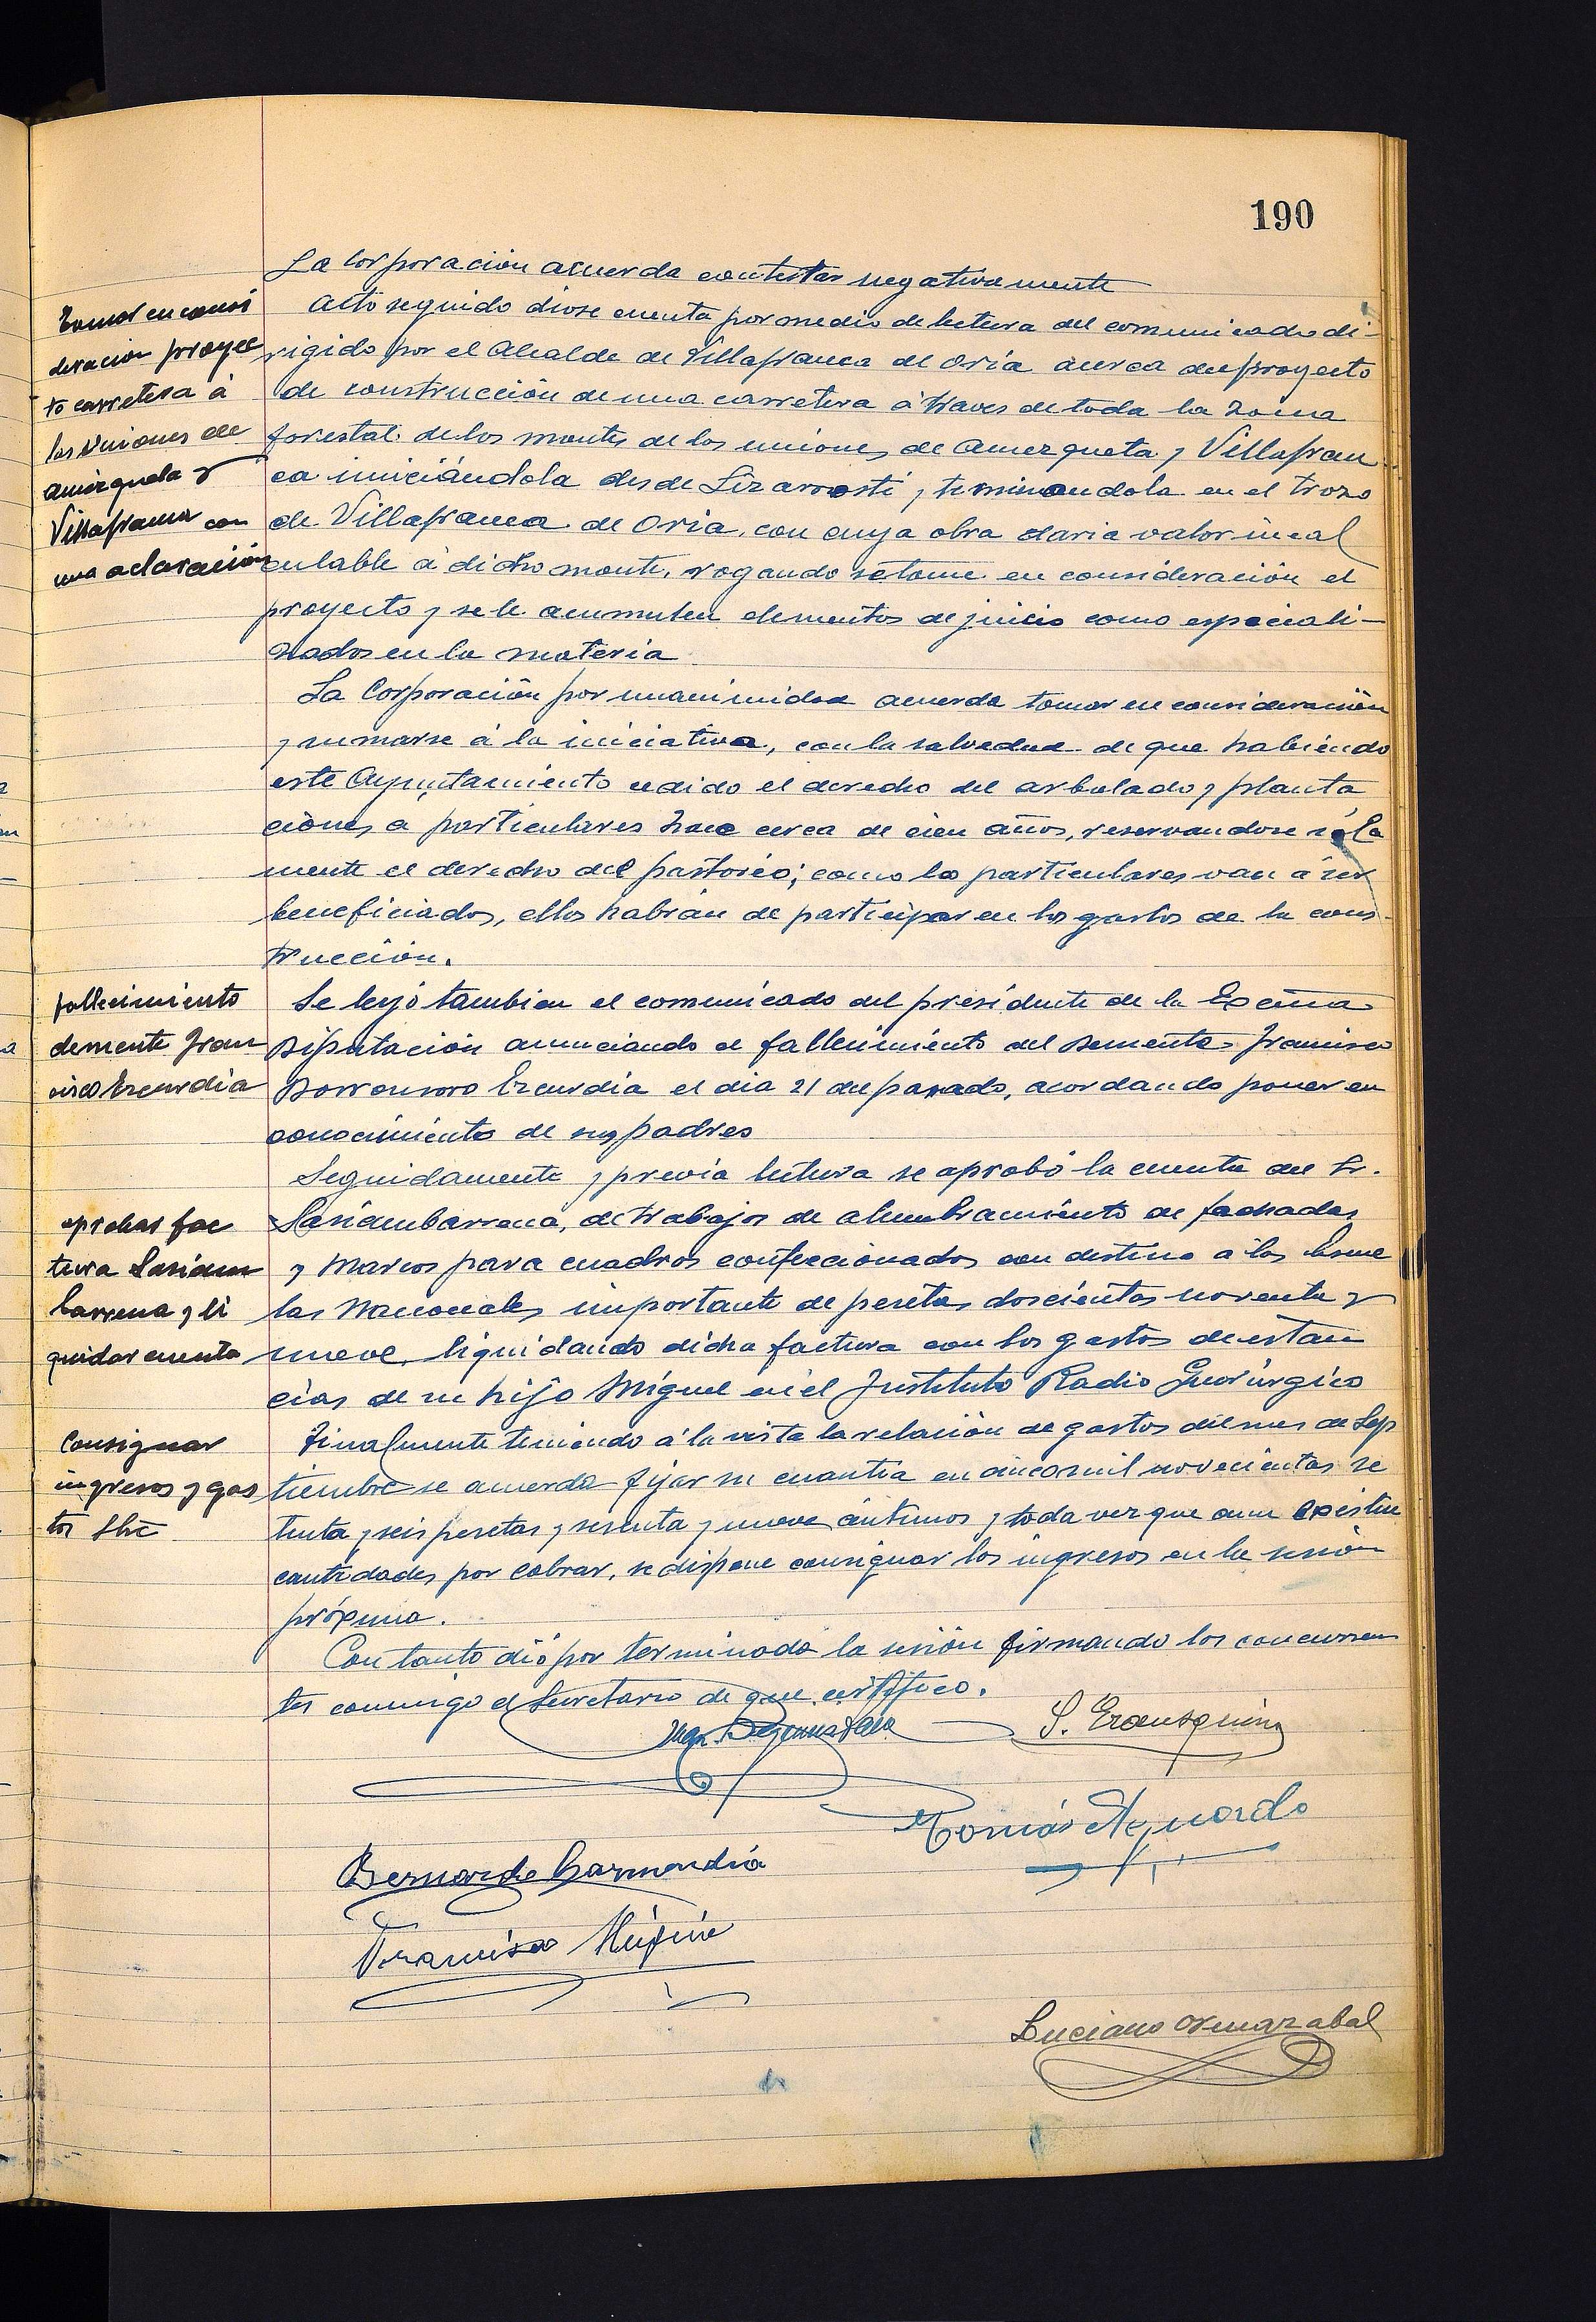 190
La Corporación acuerda contestar negativamente
Tomar en consi
deracion proyec
to carretera á
las Uniones de
Amezqueta y
Villafranca con
una aclaración
Acto seguido diose cuenta por medio de lectura del comunicado di-
rigido por el Alcalde de Villafranca de Oria acerca del proyecto
de construcción de una carretera á traves de toda la zona
forestal de los montes de las uniones de Amezqueta y Villafran-
ca iniciándola desde Lizarrosti y terminandola en el trozo
de Villafranca de Oria, con cuya obra daria valor incal
culable á dicho monte, rogando se tome en consideración el
proyecto y se le acumulen elementos de juicio como especiali-
zados en la materia
La Corporación por unanimidad acuerda tomar en consideración
y sumarse á la iniciativa, con la salvedad de que habiendo
este Ayuntamiento cedido el derecho del arbolado y planta
ciones a particulares hace cerca de cien años, reservandose sóla
mente el derecho del pastoreo; como los particulares van á ser
beneficiados, ellos habrán de participar en los gastos de la cons-
trucción.
fallecimiento
demente Fran
cisco Ezcurdia
Se leyó tambien el comunicado del presidente de la Excma
Diputación anunciando el fallecimiento del demente Francisco
Dorronsoro Ezcurdia el dia 21 del pasado, acordando poner en
conocimiento de sus padres
aprobar fac
tura Sarium
barrena y li
quidar cuenta
Seguidamente y previa lectura se aprobó la cuenta del Sr.
Sariumbarrena, de trabajos de alumbramiento de fachadas
y marcos para cuadros confeccionados con destino a las Escue
las Nacionales importante de pesetas doscientas noventa y
nueve, liquidando dicha factura con los gastos de estan
cias de su hijo Miguel en el Instituto Radio Quirúrgico
Consignar
ingresos y gas
tos Sbre
Finalmente teniendo á la vista la relación de gastos del mes de Sep
tiembre se acuerda fijar su cuantia en cinco mil novecientas se
tenta y seis pesetas y sesenta y nueve céntimos y toda vez que aun existen
cantidades por cobrar, se dispone consignar los ingresos en la sesión
próxima.
Con tanto dió por terminada la sesión firmando los concurren
tes conmigo el Secretario de que certifico.
S. Erausquin
Tomás
Bernardo Garmendia
Francisco Múgica
Luciano Ormazabal